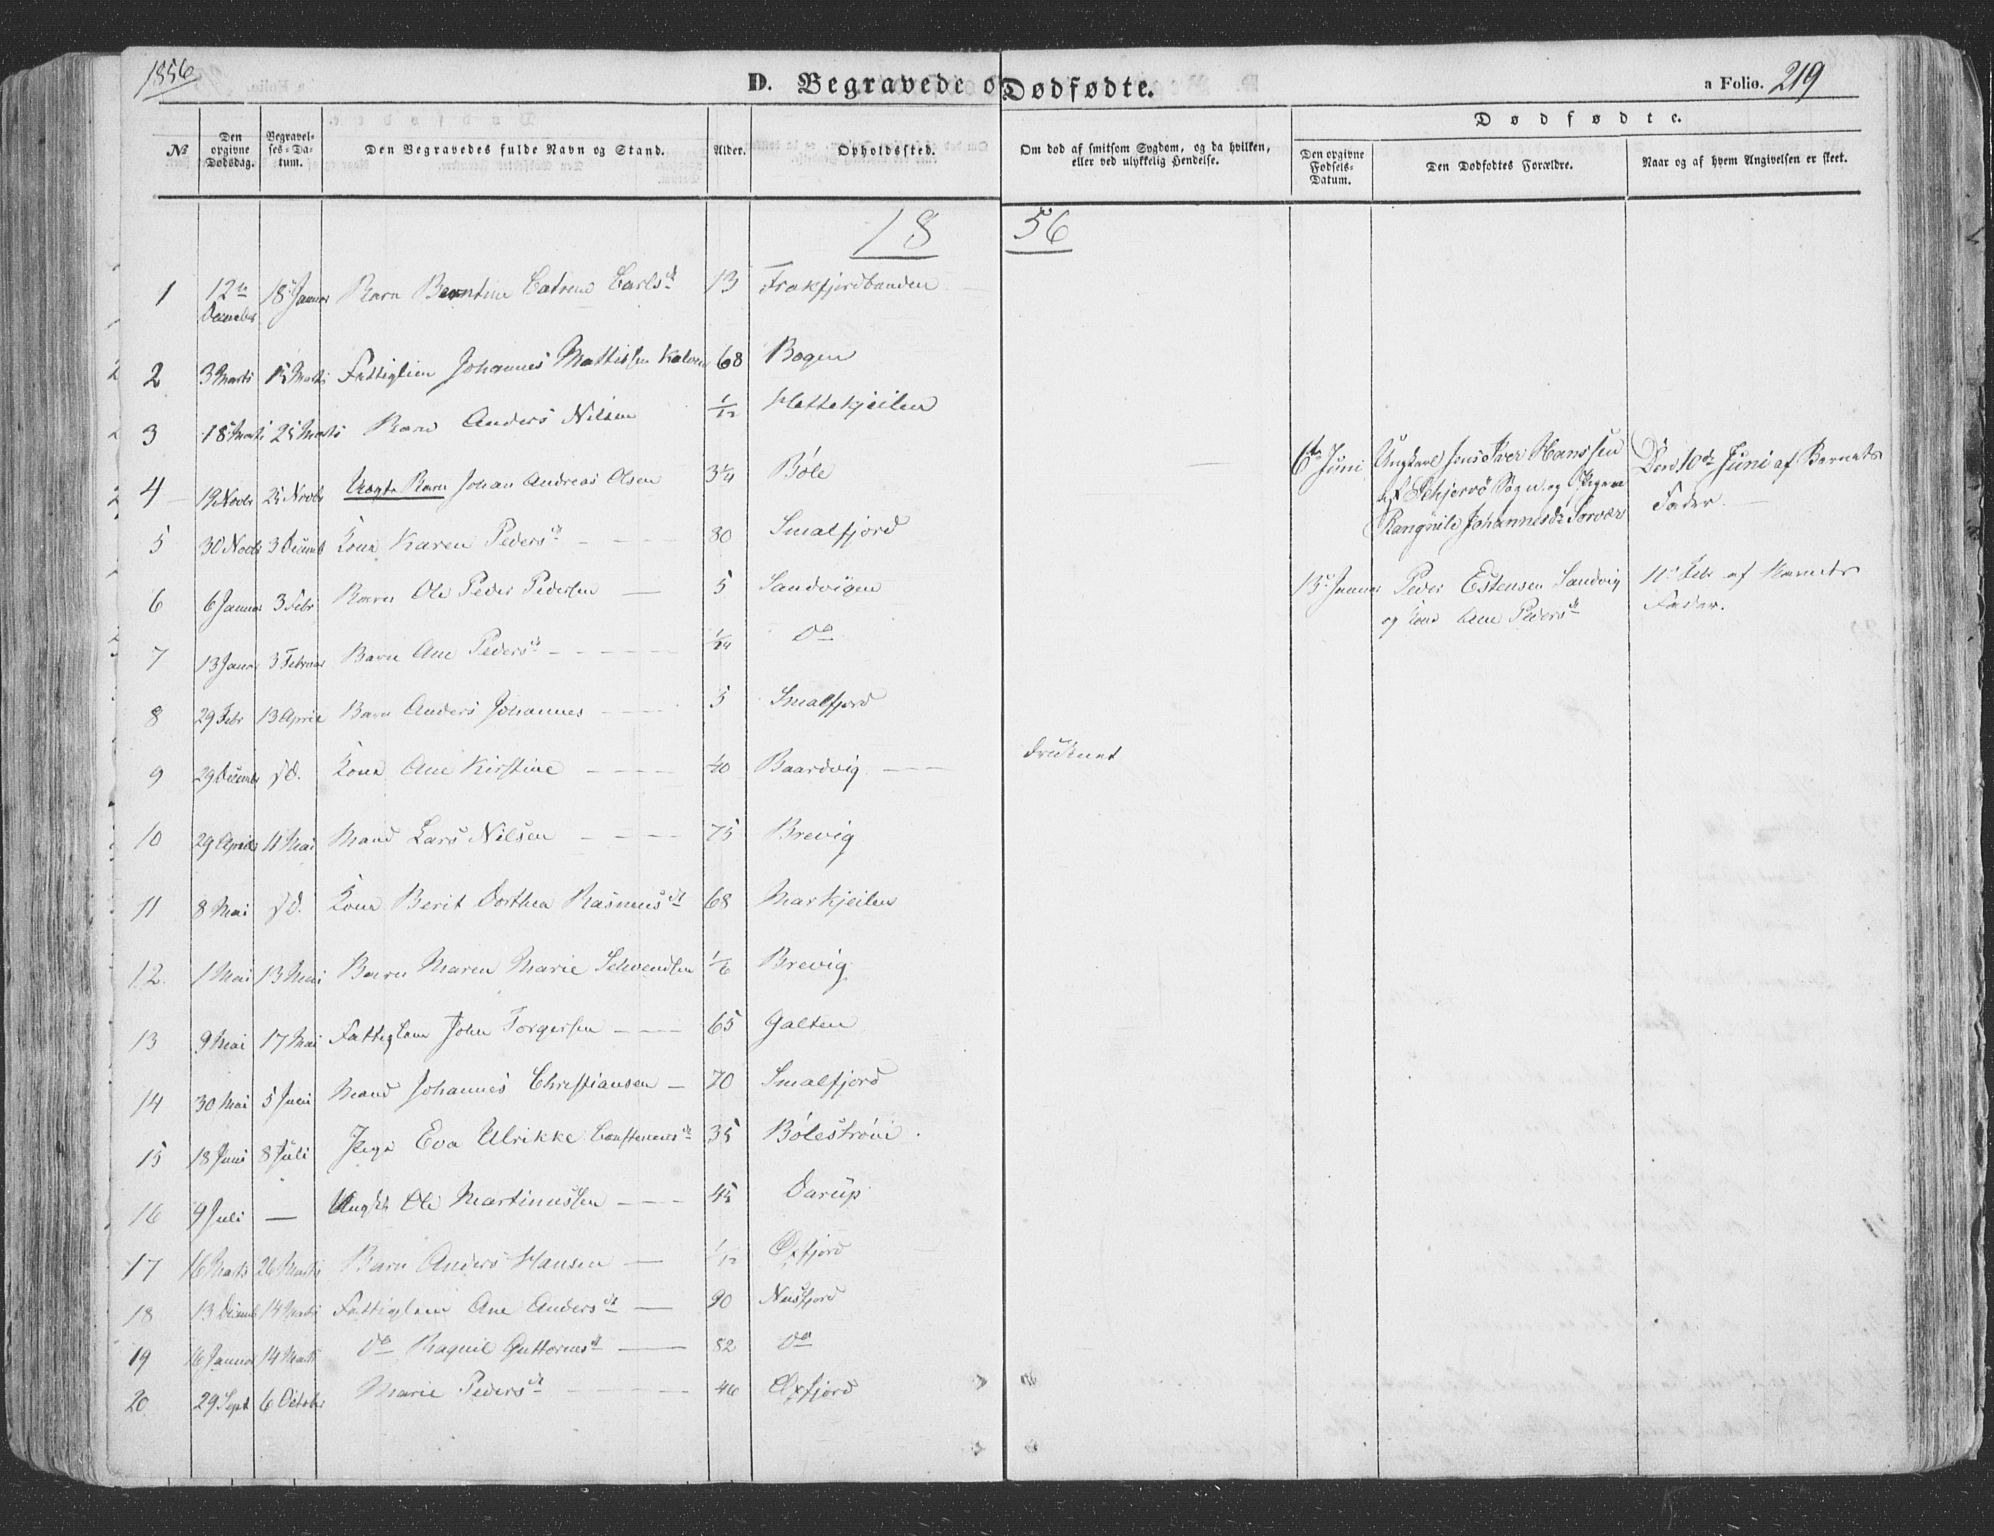 1856
D. Begravede o Dødfødte.
a Folio. 219
Dødfødte.
No
Den orgivne Dødsdag.
Begravelses-Datum.
Den Begravedes fulde Navn og Stand.
Alder.
Opholdssted.
Om død af smitsom Sygdom, og da hvilken, eller ved ulykkelig Hendelse.
Den orgivne Fødsels-Datum.
Den Dødfødtes Forældre.
Naar og af hvem Angivelsen er skeet.
18 56
1 12te Decembr 18 Januar Barn Berntine Catrine Carlsdt 13 Frakfjordbunden
2 3 Marts 15 Marts Fattiglem Johannes Mathissen 68 Bogen
3 18 Marts 25 Marts Barn Anders Nilsen 1/12 Hettekjeilen
4 19 Novbr 25 Novbr Uægte Barn Johan Andreas Olsen 3 1/4 Bôle
6te Juni Ungkarl Jens Iver Hanssen
af Schjervø Sogn og Pigen
Rangnile Johannesdr Sørvær
Den 10de Juni af Barnets
Fader.
5 30 Novbr 3 Decemb Kone Karen Pedersdt 80 Smalfjord
6 6 Januar 3 Febr Barn Ole Peder Pedersen 5 Sandvigen
15 Januar Peder Estensen Sandvig
og Kone Ane Pedersdt
11 Febr af Barnets
Fader.
7 13 Januar 3 Februar Barn Ane Pedersdt 1/24 Do
8 29 Febr 13 April Barn Anders Johannes 5 Smalfjord
9 29 Decembr s. D. Kone Ane Kirstine 40 Baardvig druknet
10 29 April 11 Mai Mand Lars Nilsen 75 Brevig
11 8 Mai s. D. Kone Berit Dorthea Rasmusdt 68 Markjeilen
12. 1 Mai 13 Mai Barn Maren Marie Schvendsen 1/6 Brevig
13 9 Mai 17 Mai Fattiglem John Torgersen 65 Galten
14 30 Mai 5 Juni Mand Johannes Christiansen 70 Smalfjord
15 18 Juni 8 Juli Pige Eva Ulrikke 35 Bôlestrôm
16 9 Juli — Ungk Ole Martinussen 45 Darup
17 16 Marts 26 Marts Barn Anders Hansen 1/12 Øxfjord
18 13 Decemb 14 Marts Fattiglem Ane Andersdt 90 Nusfjord
19 16 Januar 14 Marts Do Ragnil Guttormsdt 82 Do
20 29 Sept 6 October Marie Pedersdt 46 Øxfjord